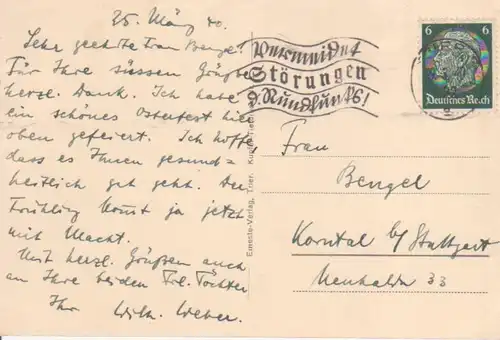 25. März 40.
Sehr geehrte Frau Bengel!
Für Ihre süssen Grüße
herzl. Dank. Ich habe
ein schönes Osterfest hier
oben gefeiert. Ich hoffe,
dass es Ihnen gesund=
heitlich gut geht. Der
Frühling kommt ja jetzt
mit Macht.
Mit herzl. Grüßen auch
an Ihre beiden Frl. Töchter
Ihr Wilh. Weber.
Ernesto-Verlag, Trier,
Vermeidet
Störungen
d. Rundfunks!
6 6
Deutsches Reich
Frau
Bengel
Korntal b/ Stuttgart
Neuhalde 33